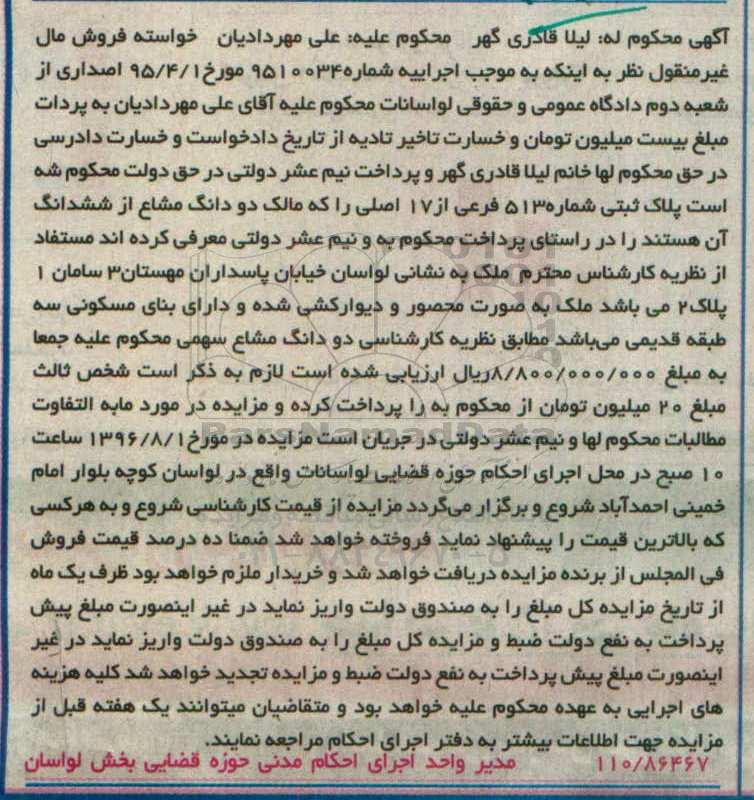 آگهی محکوم له: لیلا قادری گهر   محکوم علیه: علی مهردادیان   خواسته فروش مال
غیرمنقول نظر به اینکه به موجب اجراییه شماره ۹۵۱۰۰۳۴ مورخ ۹۵/۴/۱ اصداری از
شعبه دوم دادگاه عمومی و حقوقی لواسانات محکوم علیه آقای علی مهردادیان به پردات
مبلغ بیست میلیون تومان و خسارت تاخیر تادیه از تاریخ دادخواست و خسارت دادرسی
در حق محکوم لها خانم لیلا قادری گهر و پرداخت نیم عشر دولتی در حق دولت محکوم شه
است پلاک ثبتی شماره ۵۱۳ فرعی از ۱۷ اصلی را که مالک دو دانگ مشاع از ششدانگ
آن هستند را در راستای پرداخت محکوم به و نیم عشر دولتی معرفی کرده اند مستفاد
از نظریه کارشناس محترم ملک به نشانی لواسان خیابان پاسداران مهستان ۳ سامان ۱
پلاک ۲ می باشد ملک به صورت محصور و دیوارکشی شده و دارای بنای مسکونی سه
طبقه قدیمی می‌باشد مطابق نظریه کارشناسی دو دانگ مشاع سهمی محکوم علیه جمعا
به مبلغ ۸/۸۰۰/۰۰۰/۰۰۰ ریال ارزیابی شده است لازم به ذکر است شخص ثالث
مبلغ ۲۰ میلیون تومان از محکوم به را پرداخت کرده و مزایده در مورد مابه التفاوت
مطالبات محکوم لها و نیم عشر دولتی در جریان است مزایده در مورخ ۱۳۹۶/۸/۱ ساعت
۱۰ صبح در محل اجرای احکام حوزه قضایی لواسانات واقع در لواسان کوچه بلوار امام
خمینی احمدآباد شروع و برگزار می‌گردد مزایده از قیمت کارشناسی شروع و به هرکسی
که بالاترین قیمت را پیشنهاد نماید فروخته خواهد شد ضمنا ده درصد قیمت فروش
فی المجلس از برنده مزایده دریافت خواهد شد و خریدار ملزم خواهد بود ظرف یک ماه
از تاریخ مزایده کل مبلغ را به صندوق دولت واریز نماید در غیر اینصورت مبلغ پیش
پرداخت به نفع دولت ضبط و مزایده کل مبلغ را به صندوق دولت واریز نماید در غیر
اینصورت مبلغ پیش پرداخت به نفع دولت ضبط و مزایده تجدید خواهد شد کلیه هزینه
های اجرایی به عهده محکوم علیه خواهد بود و متقاضیان میتوانند یک هفته قبل از
مزایده جهت اطلاعات بیشتر به دفتر اجرای احکام مراجعه نمایند.
۱۱۰/۸۶۴۶۷   مدیر واحد اجرای احکام مدنی حوزه قضایی بخش لواسان
ParsNamadData